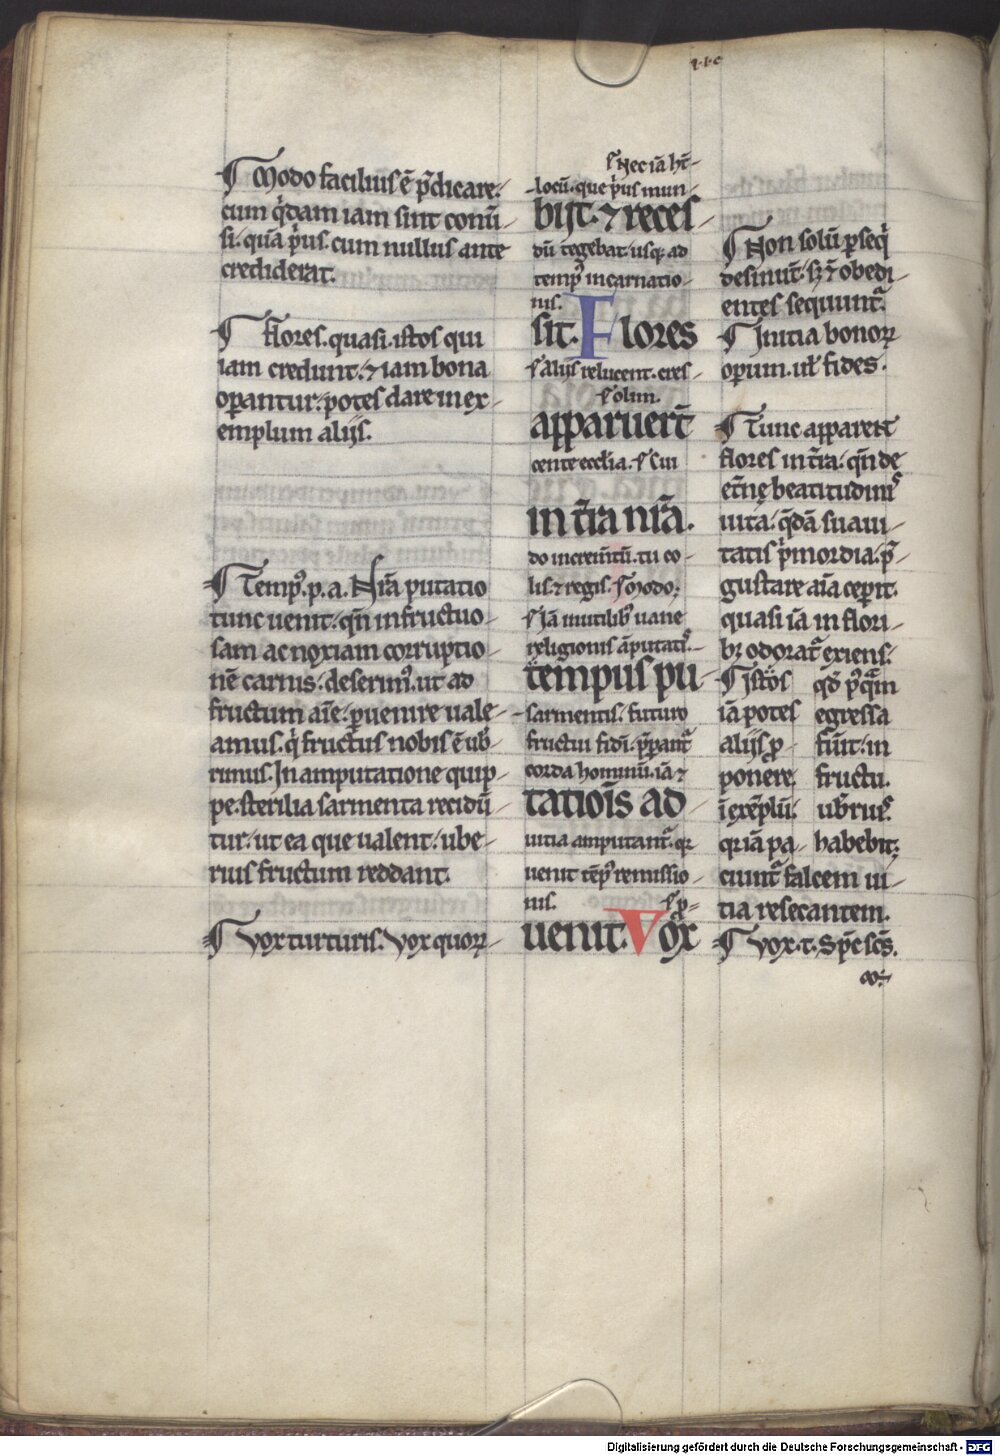 ¶ Modo facilius ē p̄dicare.
cum q̇dam iam sint conū-
si. quā p̓us. cum nullus ante
crediderat.
¶ flores. quasi. istos qui
iam credunt. ⁊ iam bona
oꝑantur. potes dare in ex-
emplum alijs.
¶ Temp᷒. p. a. Nr̄a putatio
tunc uenit. qn̄ infructuo-
sam ac noxiam corruptio-
nē carnis. deserim᷒. ut ad
fructum aīe. ꝑuenire uale-
amus. q̇ fruct᷒us nobis ē ub̄-
rimus. In amputatione quip-
pe. sterilia sarmenta recidū-
tur. ut ea que ualent. ube-
rius fructum reddant.
¶ Vox turturis. Vox quoꝝ-
¶ Nec iā ht̄-
-locū. que p̓us mun-
bijt. ⁊ reces-
dū tegebat. usq. ad
temp᷒ incarnatio-
nis.
sit. Flores
¶ alijs relucent. cres-
¶ olim.
apparuer̄t
cente eccl̄ia. ¶ Cui
in t̄ra nr̄a.
do increm̄tū. tu co-
lis. ⁊ regis. ¶ Modo;
¶ Iā inutilib᷒ uane
religionis āputatis.-
tempus pu-
-sarmentis. futuro
fructui fidi. p̄parant᷑
corda hominū. iā ⁊
tatiōis ad-
uitia amputant᷑. qꝛ
uenit tēp᷒ remissio-
nis. ¶ ꝓ-
uenit. Vox
¶ Non solū ꝑseq̇
desinūt. sꝫ ⁊ obedi-
entes sequunt᷑.
¶ Initia bonoꝝ
oꝑum. ul̓ fides.
¶ Tunc apparent
flores in t̄ra. qn̄ de
et̄nę beatitudinis
uita. q̄dā suaui-
tatis p̓mordia. p̄-
gustare aīa ceꝑit.
quasi iā in flori-
bꝫ odorat᷑ exiens.
¶ Istos
iā potes
alijs ꝓ-
ponere.
ī exēplū.
qꝛ iā pa-
qđ p᷒quam
egressa
fūit. in
fructu.
ub̄rius.
habebit;
ciunt᷑ falcem ui-
tia resecantem.
¶ Vox. t. Sp̄c sc̄s.